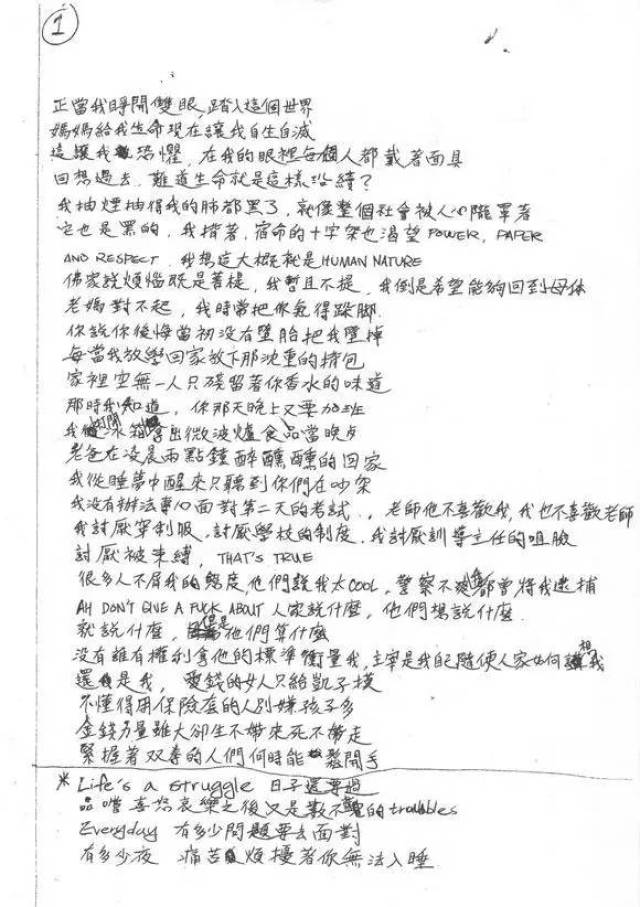 1
正當我睜開雙眼，踏入這個世界
媽媽給我生命現在讓我自生自滅
這讓我恐懼，在我的眼裡每個人都戴著面具
回想過去，難道生命就是這樣沿續？
我抽煙抽得我的肺都黑了，就像整個社會被人心籠罩著
它也是黑的，我揹著，宿命的十字架也渴望 POWER, PAPER
AND RESPECT，我想這大概就是 HUMAN NATURE
佛家說煩惱既是菩提，我暫且不提，我倒是希望能夠回到母体
老媽對不起，我時常把你氣得跺腳
你說你後悔當初沒有墮胎把我墮掉
每當我放學回家放下那沈重的揹包
家裡空無一人只殘留著你香水的味道
那時我知道，你那天晚上又要加班
我打開冰箱拿出微波爐食品當晚点
老爸在凌晨兩點鐘醉醺醺的回家
我從睡夢中醒來只聽到你們在吵架
我沒有辦法專心面對第二天的考試，老師他不喜歡我，我也不喜歡老師
我討厭穿制服，討厭學校的制度，我討厭訓導主任的咀臉
討厭被束縛，THAT'S TRUE
很多人不屑我的態度，他們說我太COOL，警察不爽都會將我逮捕
AH DON'T GIVE A FUCK ABOUT 人家說什麼，他們想說什麼
就說什麼，但是他們算什麼
沒有誰有權利拿他的標準衡量我，主宰是我自己隨便人家如何想我
還是我，愛錢的女人只給凱子摸
不懂得用保險套的人別嫌孩子多
金錢力量雖大卻生不帶來死不帶走
緊握著双拳的人們何時能鬆開手
* Life's a struggle 日子還要過
品嚐喜怒哀樂之後又是數不盡的troubles
Everyday 有多少問題要去面對
有多少夜 痛苦煩擾著你無法入睡